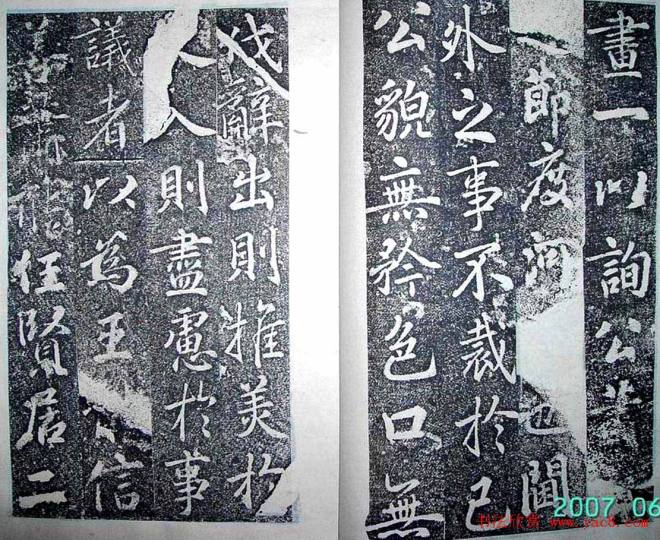 畫一以詢公
節度河也闗
外之事不裁於已
公貌無矜色口無
伐辭出則推美於
人人則盡慮於事
議者以爲王公信
任賢居二
2007 06
书法欣赏 www.yac8.com